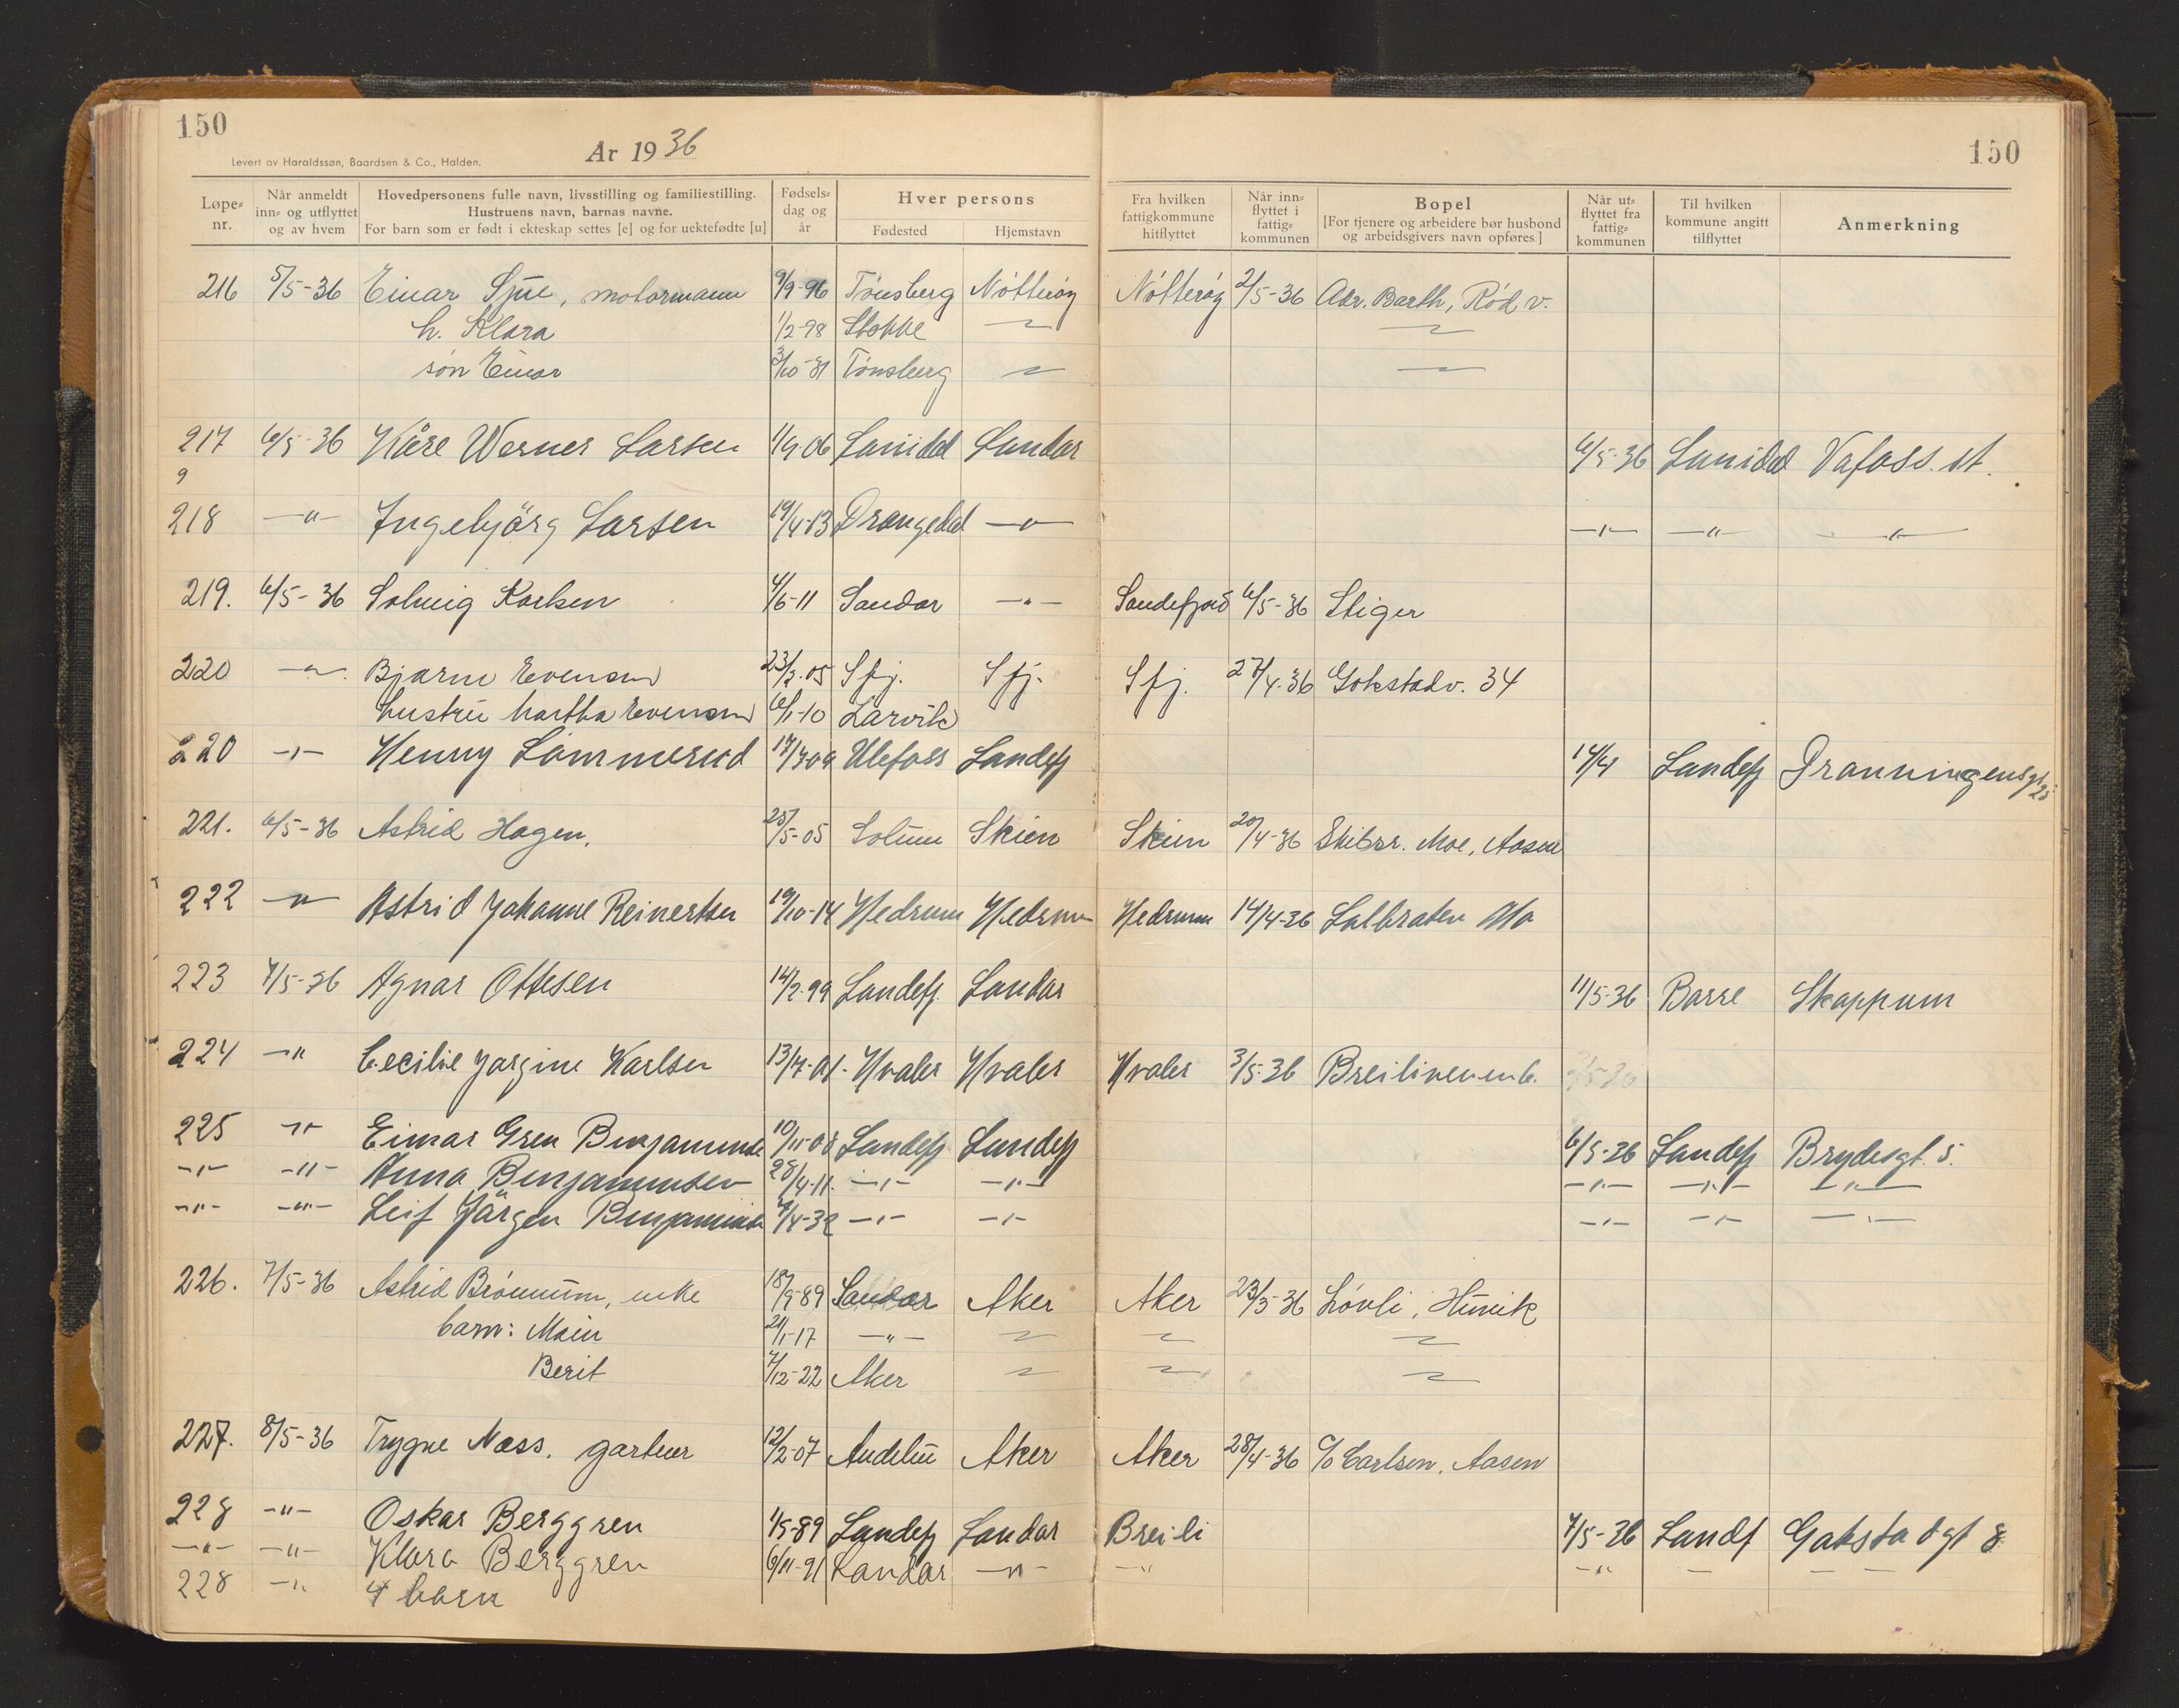 150
År 1936
150
Levert av Haraldssøn, Baardsen & Co., Halden.
Løpe-nr. | Når anmeldt inn- og utflyttet og av hvem | Hovedpersonens fulle navn, livsstilling og familiestilling. Hustruens navn, barnas navne. For barn som er født i ekteskap settes [e] og for uektefødte [u] | Fødsels-dag og år | Hver persons Fødested | Hjemstavn | Fra hvilken fattigkommune hitflyttet | Når inn-flyttet i fattig-kommunen | Bopel [For tjenere og arbeidere bør husbond og arbeidsgivers navn opføres] | Når ut-flyttet fra fattig-kommunen | Til hvilken kommune angitt tilflyttet | Anmerkning
216 5/5-36 Einar Sjue, motormann 9/9-96 Tønsberg Nøtterøy Nøtterøy 2/5-36 Adr. Barth, Rød v.
h. Klara 1/2-98 Stokke
søn Einar 3/10-31 Tønsberg
217 6/5-36 Kåre Werner Larsen 1/9-06 Sanidal Sandar 6/5-36 Sanidal Vafoss st.
9
218 -"- Ingebjörg Larsen 19/4-13 Drangedal -"- -"- -"- -"-
219. 6/5-36 Solveig Karlsen 4/6-11 Sandar -"- Sandefjord 6/5-36 Stiger
220 -"- Bjarne Evensen 23/2-05 Sfj. Sfj. Sfj. 27/4-36 Gokstadv. 34
hustru Martha Evensen 6/1-10 Larvik
220 -"- Henny Lömmerud 17/7-09 Ulefoss Sandefj 14/4 Sandefj Dronningensgt 25
221. 6/5-36 Astrid Hagen, 25/5-05 Solum Skien Skien 20/4-36 Skibsr. Moe, Aasen
222 -"- Astrid Johanne Reinertsen 19/10-14 Hedrum Hedrum Hedrum 14/4-36 Solbraten Mo
223 7/5-36 Agnar Ottesen 14/2-99 Sandefj. Sandar 11/5-36 Borre Skoppum
224 -"- Cecilie Jorgine Karlsen 13/7-01 Hvaler Hvaler Hvaler 3/5-36 Breiliveien 6.
225 -"- Eimar Gren Benjaminsen 10/11-08 Sandefj Sandefj 6/5-36 Sandefj Brydesgt. 5.
-"- -"- Anna Benjaminsen 28/4-11. -"- -"- -"- -"- -"-
-"- -"- Leif Jörgen Benjaminsen 7/4-32 -"- -"- -"- -"- -"-
226. 7/5-36 Astrid Brönnum, enke 18/9-89 Sandar Aker Aker 23/3-36 Løvli, Hunik
barn: Main 21/1-17 -"-
Berit 7/12-22 Aker
227. 8/5-36 Trygve Næss. gartner 12/2-07 Andebu Aker Aker 28/4-36 c/o Carlsen, Aasen
228 -"- Oskar Berggren 1/5-89 Sandefj Sandar Breili 7/5-36 Sandf Gokstadgt 8
-"- -"- Klara Berggren 6/11-91 Sandar -"- -"- -"-
228 -"- 4 barn